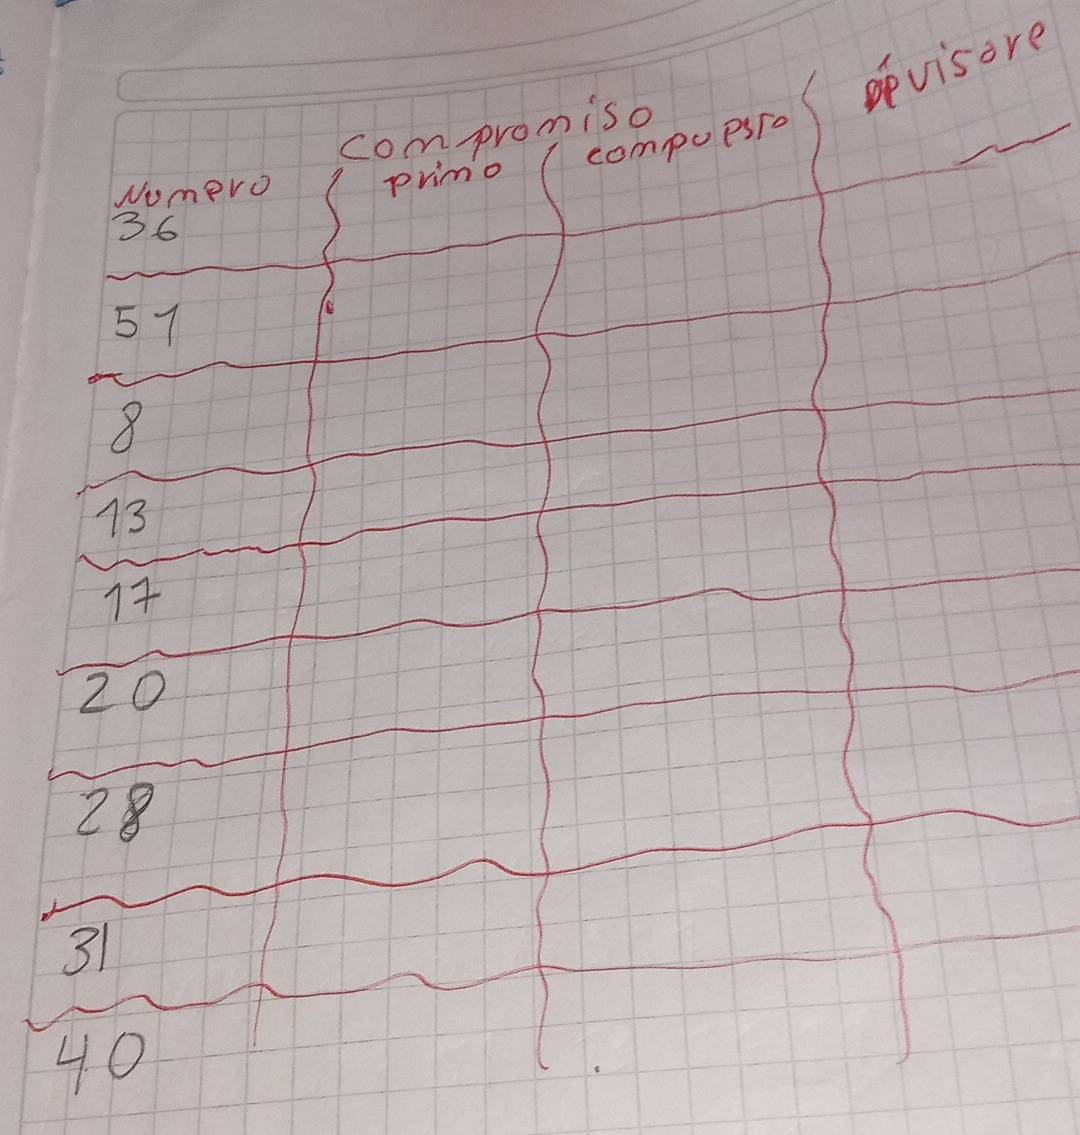 compromiso
Numero primo compuesto Devisore
36
51
8
13
17
20
28
31
40